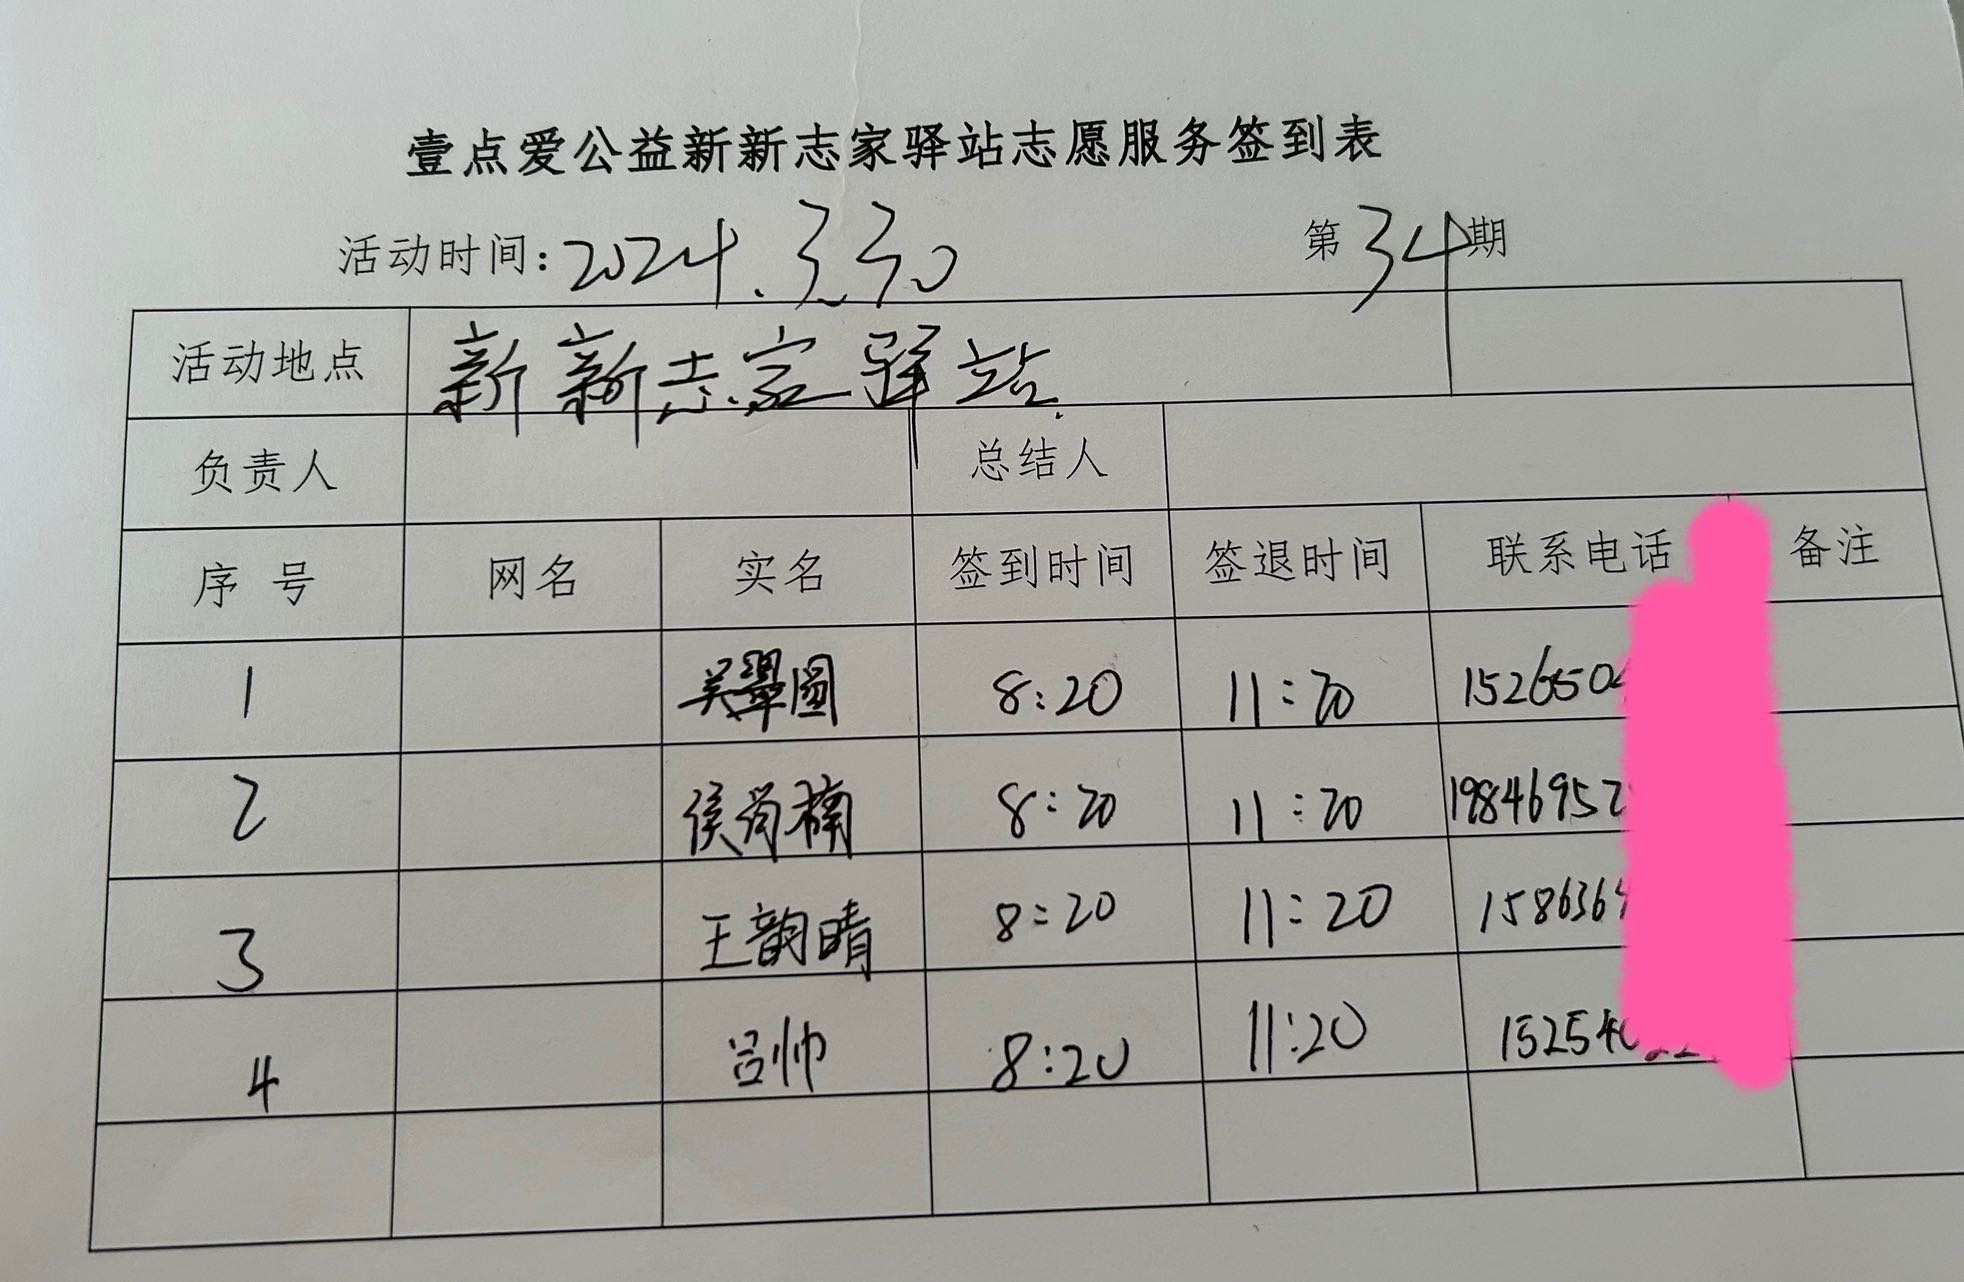 壹点爱公益新新志家驿站志愿服务签到表
活动时间:2024.3.30 第34期
活动地点 新新志家驿站.
负责人 总结人
序号 网名 实名 签到时间 签退时间 联系电话 备注
1 8:20 11:20 1526504
2 侯尚楠 8:20 11:20 19846952
3 王韵晴 8:20 11:20 1586364
4 吕帅 8:20 11:20 15254022